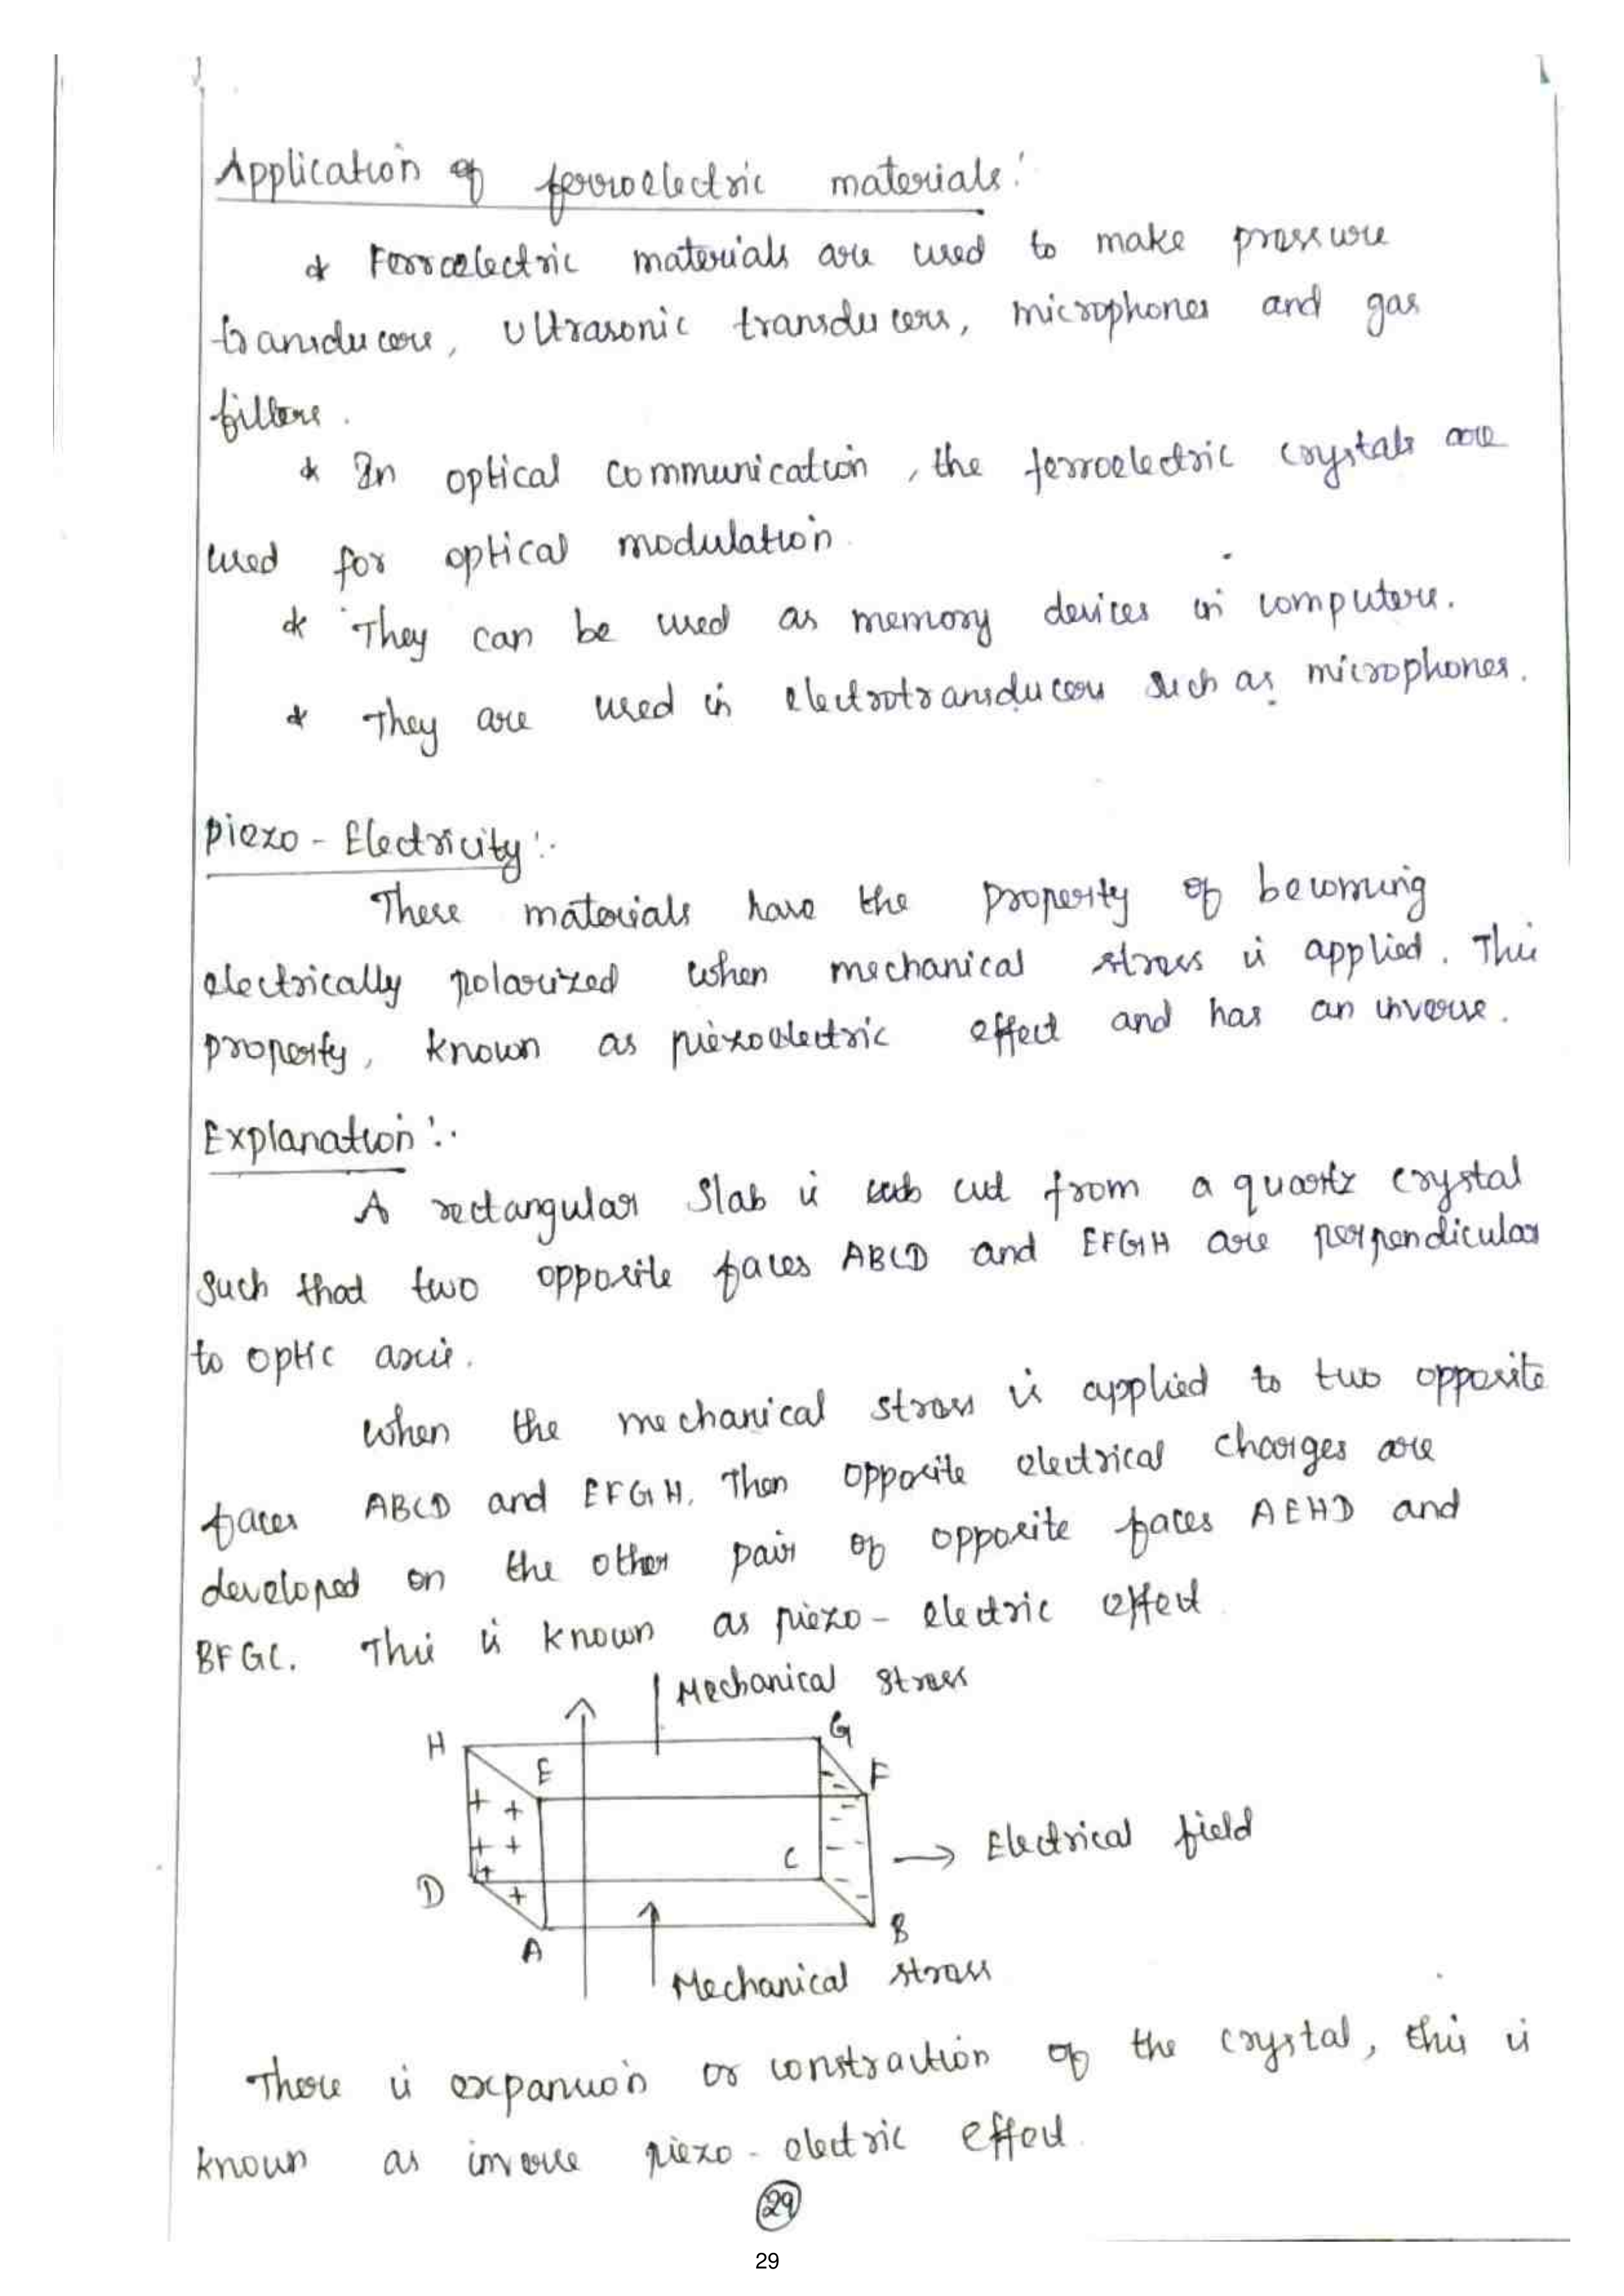 Application of ferroelectric materials:
* Ferroelectric materials are used to make pressure
transducers, ultrasonic transducers, microphones and gas
filters.
* In optical communication, the ferroelectric crystals are
used for optical modulation.
* They can be used as memory devices in computers.
* They are used in electrotransducers such as microphones.
Piezo - Electricity:-
These materials have the property of becoming
electrically polarized when mechanical stress is applied. This
property, known as piezoelectric effect and has an inverse.
Explanation:-
A rectangular slab is cut from a quartz crystal
such that two opposite faces ABCD and EFGH are perpendicular
to optic axis.
When the mechanical stress is applied to two opposite
faces ABCD and EFGH. Then opposite electrical charges are
developed on the other pair of opposite faces AEHD and
BFGC. This is known as piezo - electric effect.
Mechanical stress
H
G
E
F
+ +
+ +
+
+
C
→ Electrical field
D
B
A
Mechanical stress
There is expansion or constraction of the crystal, this is
known as inverse piezo - electric effect.
29
29